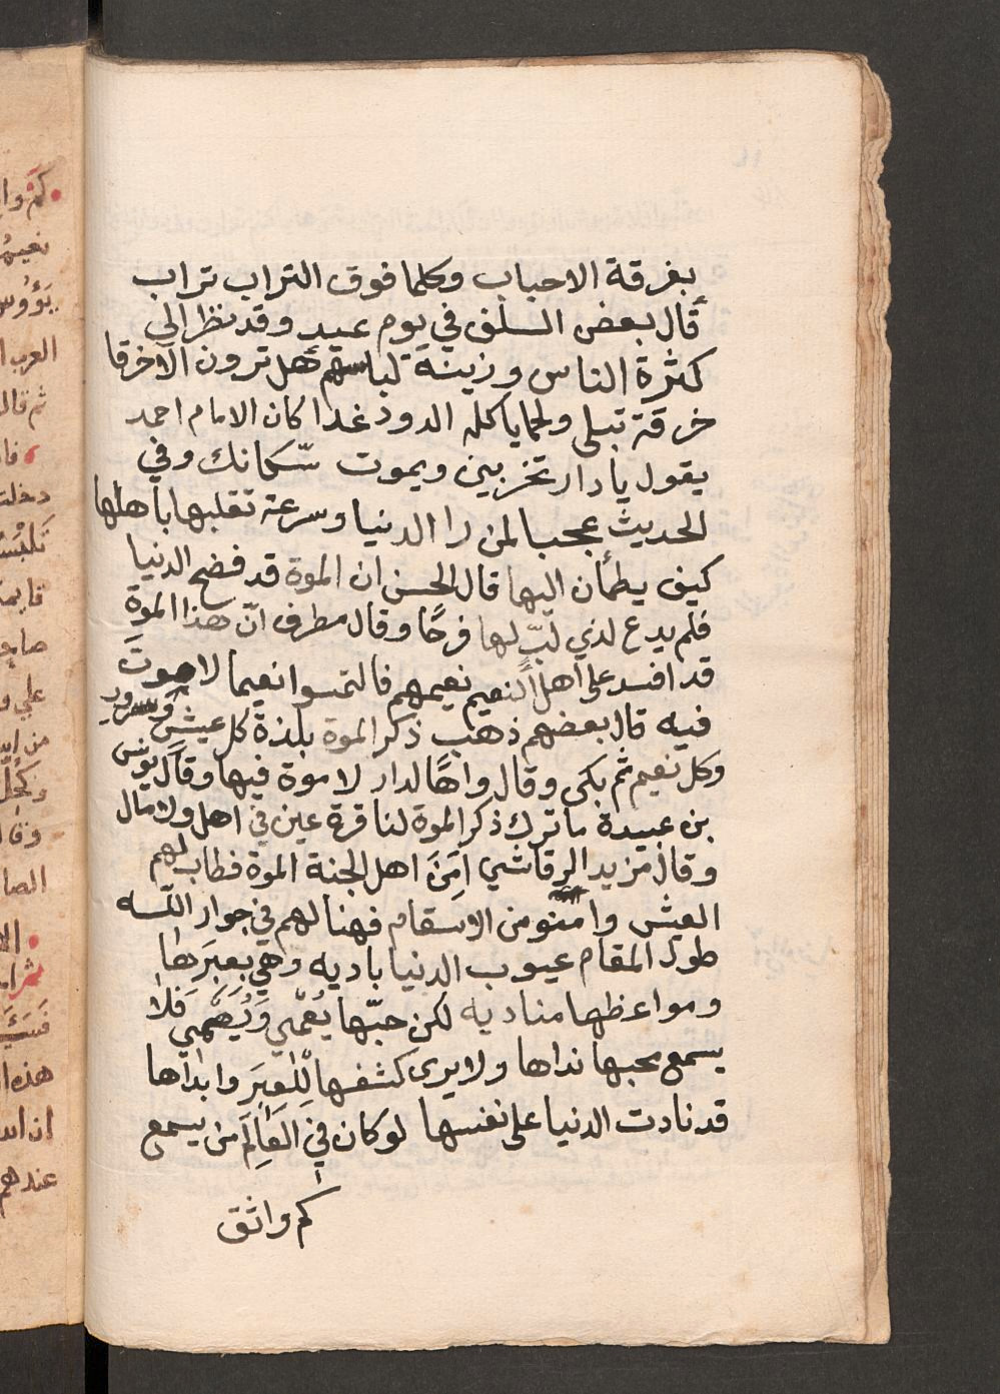 بفرقة الاحباب وكلما فوق التراب تراب
قال بعض السلف في يوم عيد وقد نظر الي
كثرة الناس وزينة لباسهم هل ترون الاخرقا
خرقة تبلى ولحما ياكله الدود غدا كان الامام احمد
يقول يا دار تخربين ويموت سّكانك وفي
الحديث عجبا لمن را الدنيا وسرعة تقلبها باهلها
كيف يطمأن اليها قال الحسن ان الموة قد فضح الدنيا
فلم يدع لذي لبّ لها فرحًا وقال مطرف انّ هذا الموة
قد افسد على اهل النعيم نعيمهم فالتمسوا نعيما لا موت
فيه قال بعضهم ذهب ذكر الموة بلذة كل عيش وسرور
وكل نعيم ثم بكى وقال واهًا لدار لا موة فيها وقال يونس
بن عبيدة ما ترك ذكر الموة لنا قرة عين في اهل ولا مال
وقال مزيد الرقاشي امِنَ اهل الجنة الموة فطاب لهم
العيش وامنو من الاسقام فهنا لهم في جوار اللّه
طول المقام عيوب الدنيا باديه وهي بعبَرِها
ومواعظها مناديه لكن حبّها يُعْمّي وَيُصَمّي فَلا
يسمع محبها نداها ولا يرى كشفها لِلعِبَرَ وابداها
قد نادت الدنيا على نفسها لو كان في العَالَمِ من يسمع
كم واثق
كَمْ وا
نعيم
العرب
ثم قال
دخلت
علي و
من
وقا
الصا
هذه ا
عندهم